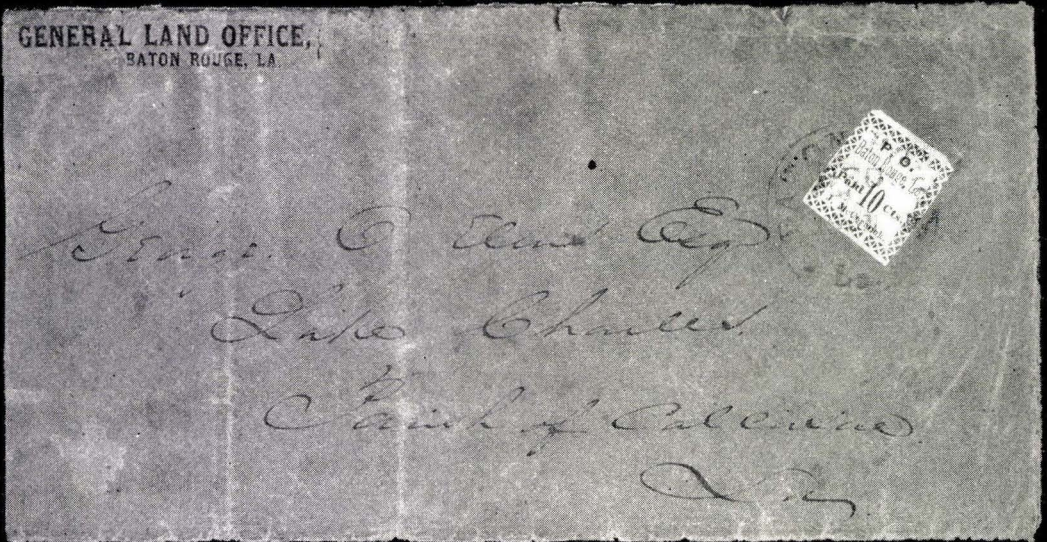 GENERAL LAND OFFICE,
BATON ROUGE, LA
P. O.
Baton Rouge, La.
Paid 10 Cts.
George C Esq
Lake Charles
Parish of Calcasieu
La